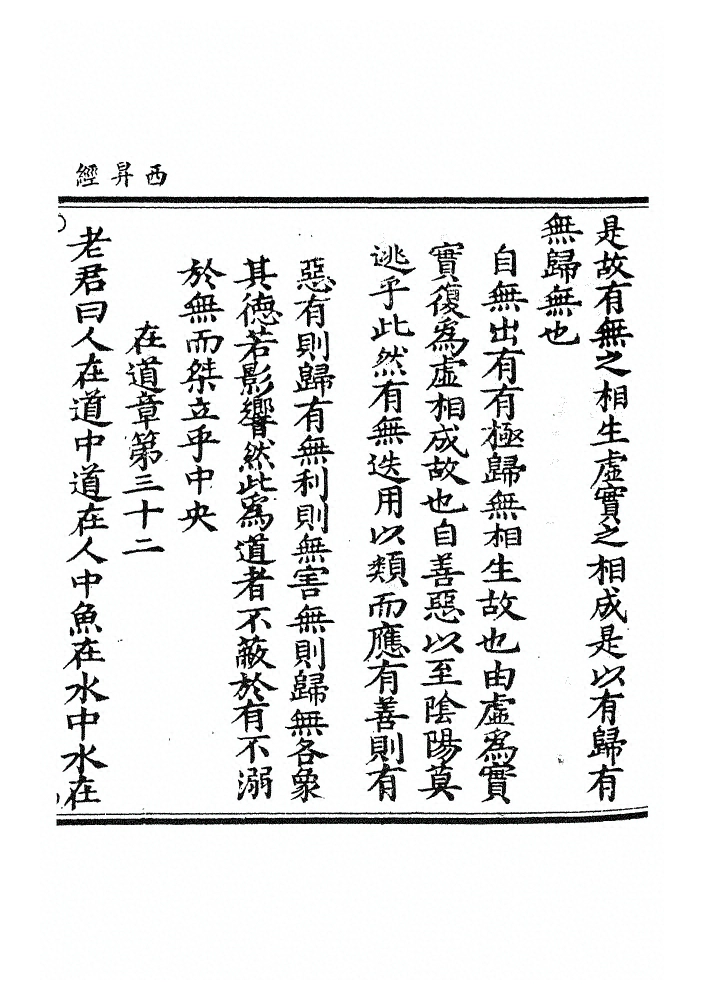 西昇經
是故有無之相生虛實之相成是以有歸有
無歸無也
自無出有有極歸無相生故也由虛爲實
實復爲虛相成故也自善惡以至陰陽莫
逃乎此然有無迭用以類而應有善則有
惡有則歸有無利則無害無則歸無各象
其德若影響然此爲道者不蔽於有不溺
於無而桀立乎中央
在道章第三十二
老君曰人在道中道在人中魚在水中水在